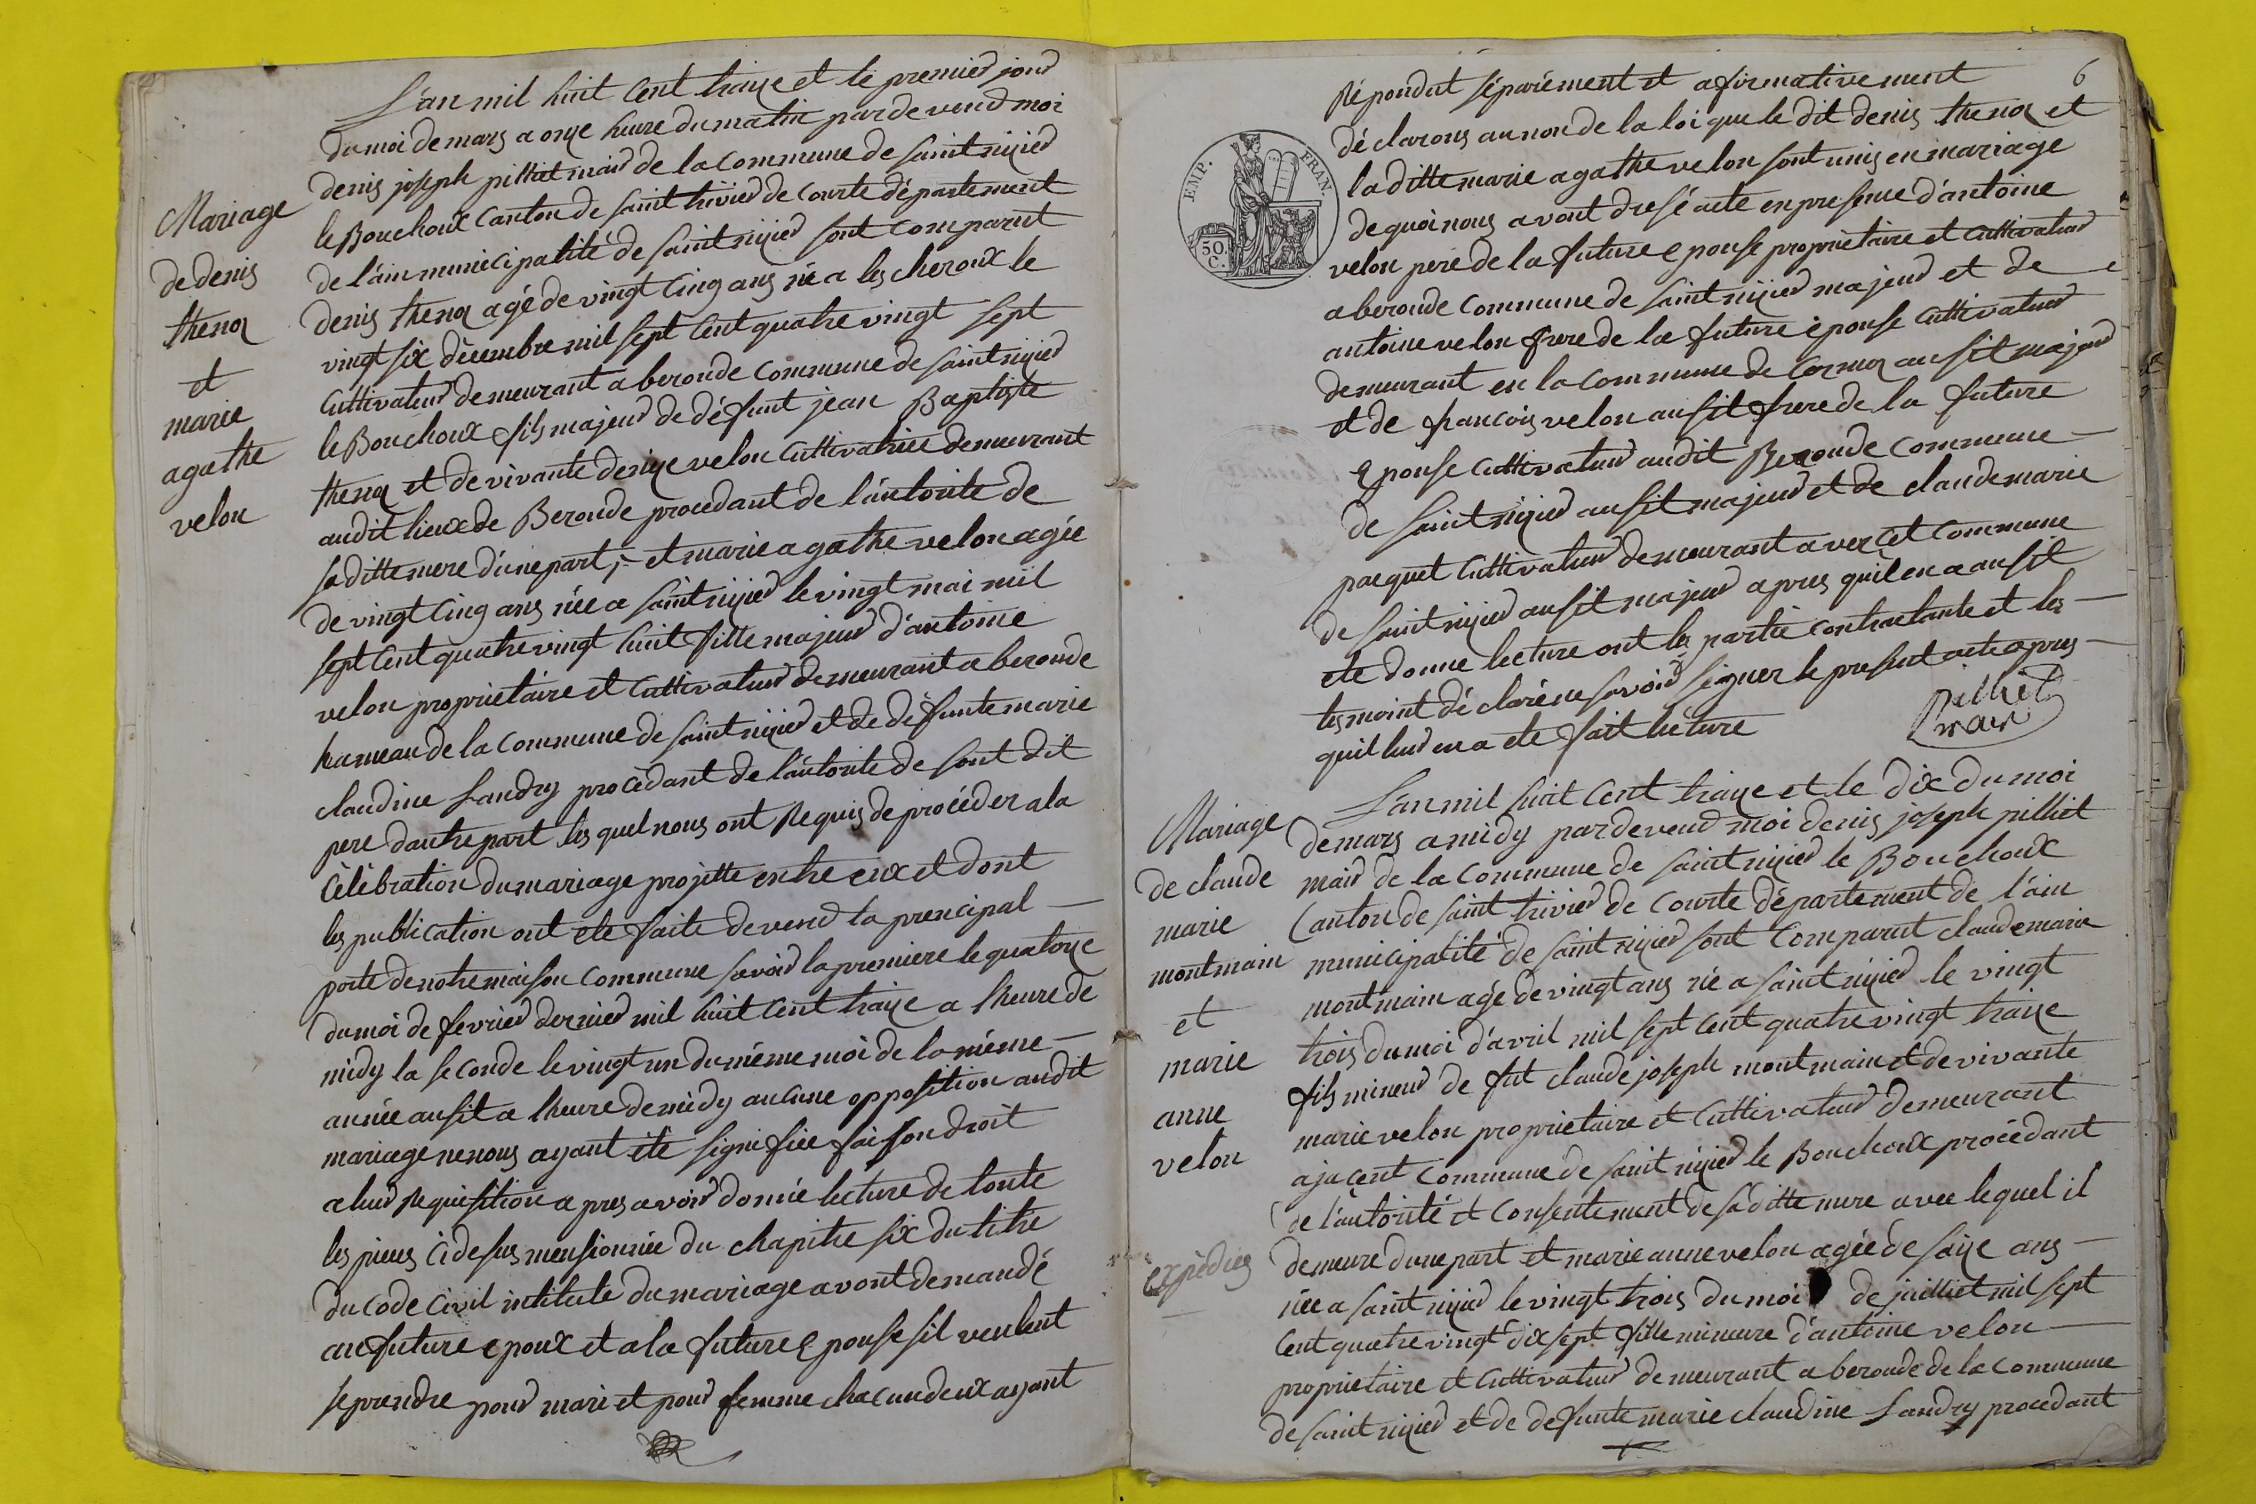 L'an mil huit cent traize et le premier jour
du moi de mars a onze heure du matin par devend moi
denis joseph pilliat mair de la commune de saint nizier
le Bouchoux canton de saint trivier de courte département
de l'ain municipalité de saint nizier sont comparut
denis thenoz agé de vingt cinq ans né a les cheroux le
vingt six décembre mil sept cent quatre vingt sept
cultivateur demeurant a beronde commune de saint nizier
le Bouchoux fils majeur de défunt jean Baptiste
thenoz et de vivante denize velon cultivatrice demeurant
audit lieux de Beronde procedant de l'autorite de
sa ditte mere d'une part ;- et marie agathe velon agée
de vingt cinq ans née a saint nizier le vingt mai mil
sept cent quatre vingt huit fille majeur d'antoine
velon proprietaire et cultivateur demeurant a beronde
hameau de la commune de saint nizier et de défunte marie
claudine Landry procédant de l'autorite de sont dit
pere dautre part les quel nous ont Requis de procéder a la
célébration du mariage projette entre eux et dont
les publication ont ete faite devend la prencipal
porte de notre maison commune savoir la premiere le quatorze
du moi de fevrier dernier mil huit cent traize a lheure de
midy la seconde le vingt un du méme moi de la méme
année ausit a lheure de midy aucune opposition audit
mariage ne nous ayant été signifiée faison droit
a leur Requisition apres avoir donnée lecture de toute
les pieces cidesus mensionnée du chapitre six du titre
du code civil intitule du mariage avont demandé
au future epoux et a la future epouse sil veulent
se prendre pour mari et pour femme chacun deux ayant
Mariage
de denis
thenoz
et
marie
agathe
velon
6
Répondut séparément et afirmativement
déclarons au non de la loi que le dit denis thenoz et
la ditte marie agathe velon sont unis en mariage
de quoi nous avont dresé acte en presence d'antoine
velon pere de la future epouse proprietaire et cultivateur
a beronde commune de saint nizier majeur et de
antoine velon frere de la future épouse cultivateur
demeurant en la commune de Cormoz ausit majeur
et de francois velon ausit frere de la future
epouse cultivateur audit Beronde commune
de saint nizier ausit majeur et de claude marie
pacquet cultivateur demeurant a vercet commune
de saint nizier ausit majeur apres quil en a ausit
ete donne lecture ont les partie contractante et les
tesmoint déclaré ne savoir signer le present acte apres
quil leur en a ete fait lécture
Pilliat
mair
EMP. FRAN.
50
C.
L'an mil huit cent traize et le dix du moi
de mars a midy par devend moi denis joseph pilliat
mair de la commune de saint nizier le Bouchoux
canton de saint trivier de courte département de l'ain
municipalité de saint nizier sont comparut claude marie
montmain agé de vingt ans né a saint nizier le vingt
trois du moi d'avril mil sept cent quatre vingt traize
fils mineur de fut claude joseph montmain et de vivante
marie velon proprietaire et cultivateur demeurant
a jacent commune de saint nizier le Bouchoux procédant
de l'autorité et consentement de sa ditte mere avec lequel il
demeure dune part et marie anne velon agée de saize ans
née a saint nizier le vingt trois du moi de juilliet mil sept
cent quatre vingt dix sept fille mineure d'antoine velon
proprietaire et cultivateur demeurant a beronde de la commune
de saint nizier et de defunte marie claudine Landry procedant
Mariage
de claude
marie
montmain
et
marie
anne
velon
expédiez